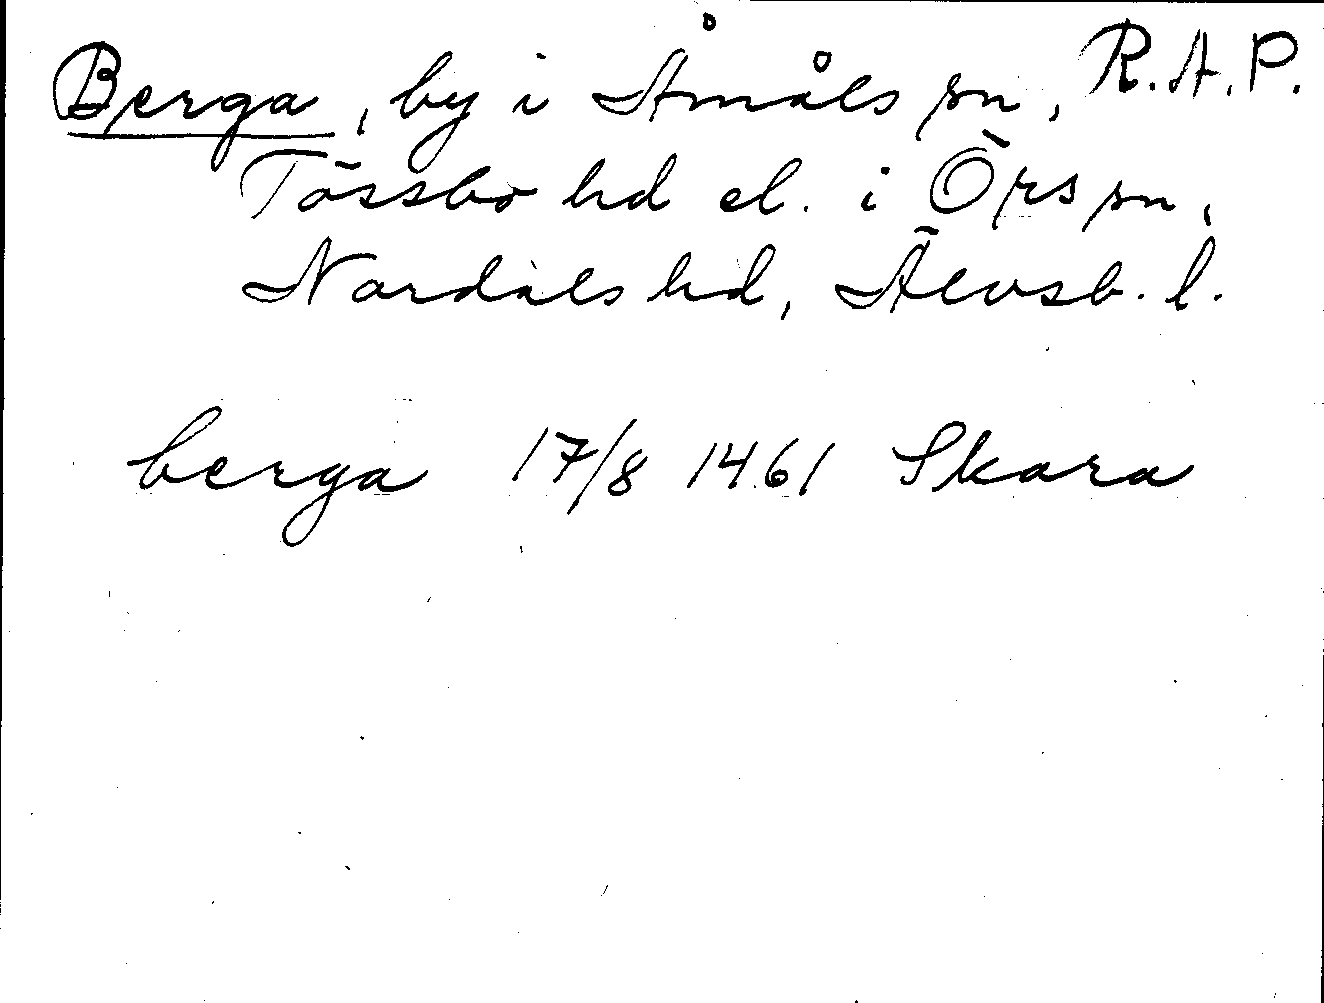 Berga, by i Åmåls sn, R.A.P.
Tössbo hd el. i Örs sn,
Nordals hd, Älvsb. l.
berga 17/8 1461 Skara